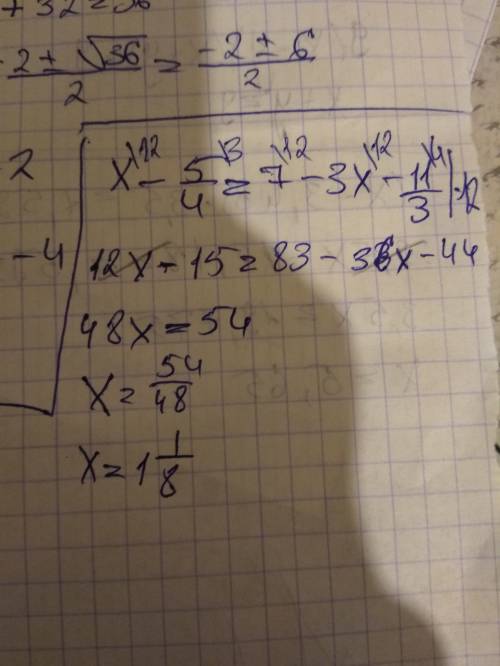 + 32 = 36
-2 ± √36 / 2 = -2 ± 6 / 2
2
x\12 - 5/4\3 = 7\12 - 3x\12 - 11/3\4 | ·12
-4
12x - 15 = 83 - 36x - 44
48x = 54
x = 54/48
x = 1 1/8